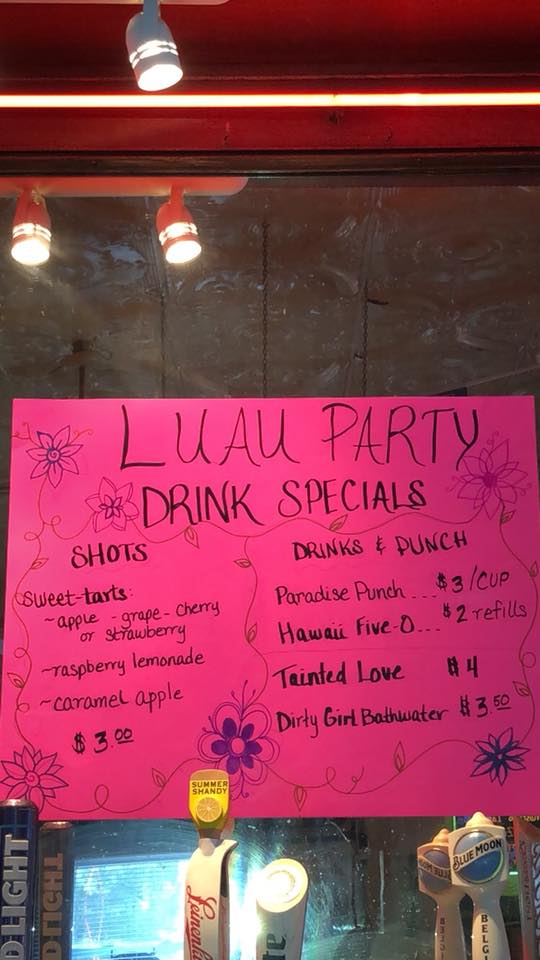 LUAU PARTY
DRINK SPECIALS
SHOTS
sweet-tarts:
~apple - grape - cherry
or strawberry
~raspberry lemonade
~caramel apple
$3.00
DRINKS & PUNCH
Paradise Punch ... $3/CUP
Hawaii Five-O... $2 refills
Tainted Love $4
Dirty Girl Bathwater $3.50
SUMMER
SHANDY
D LIGHT
BLUE MOON
BELGI